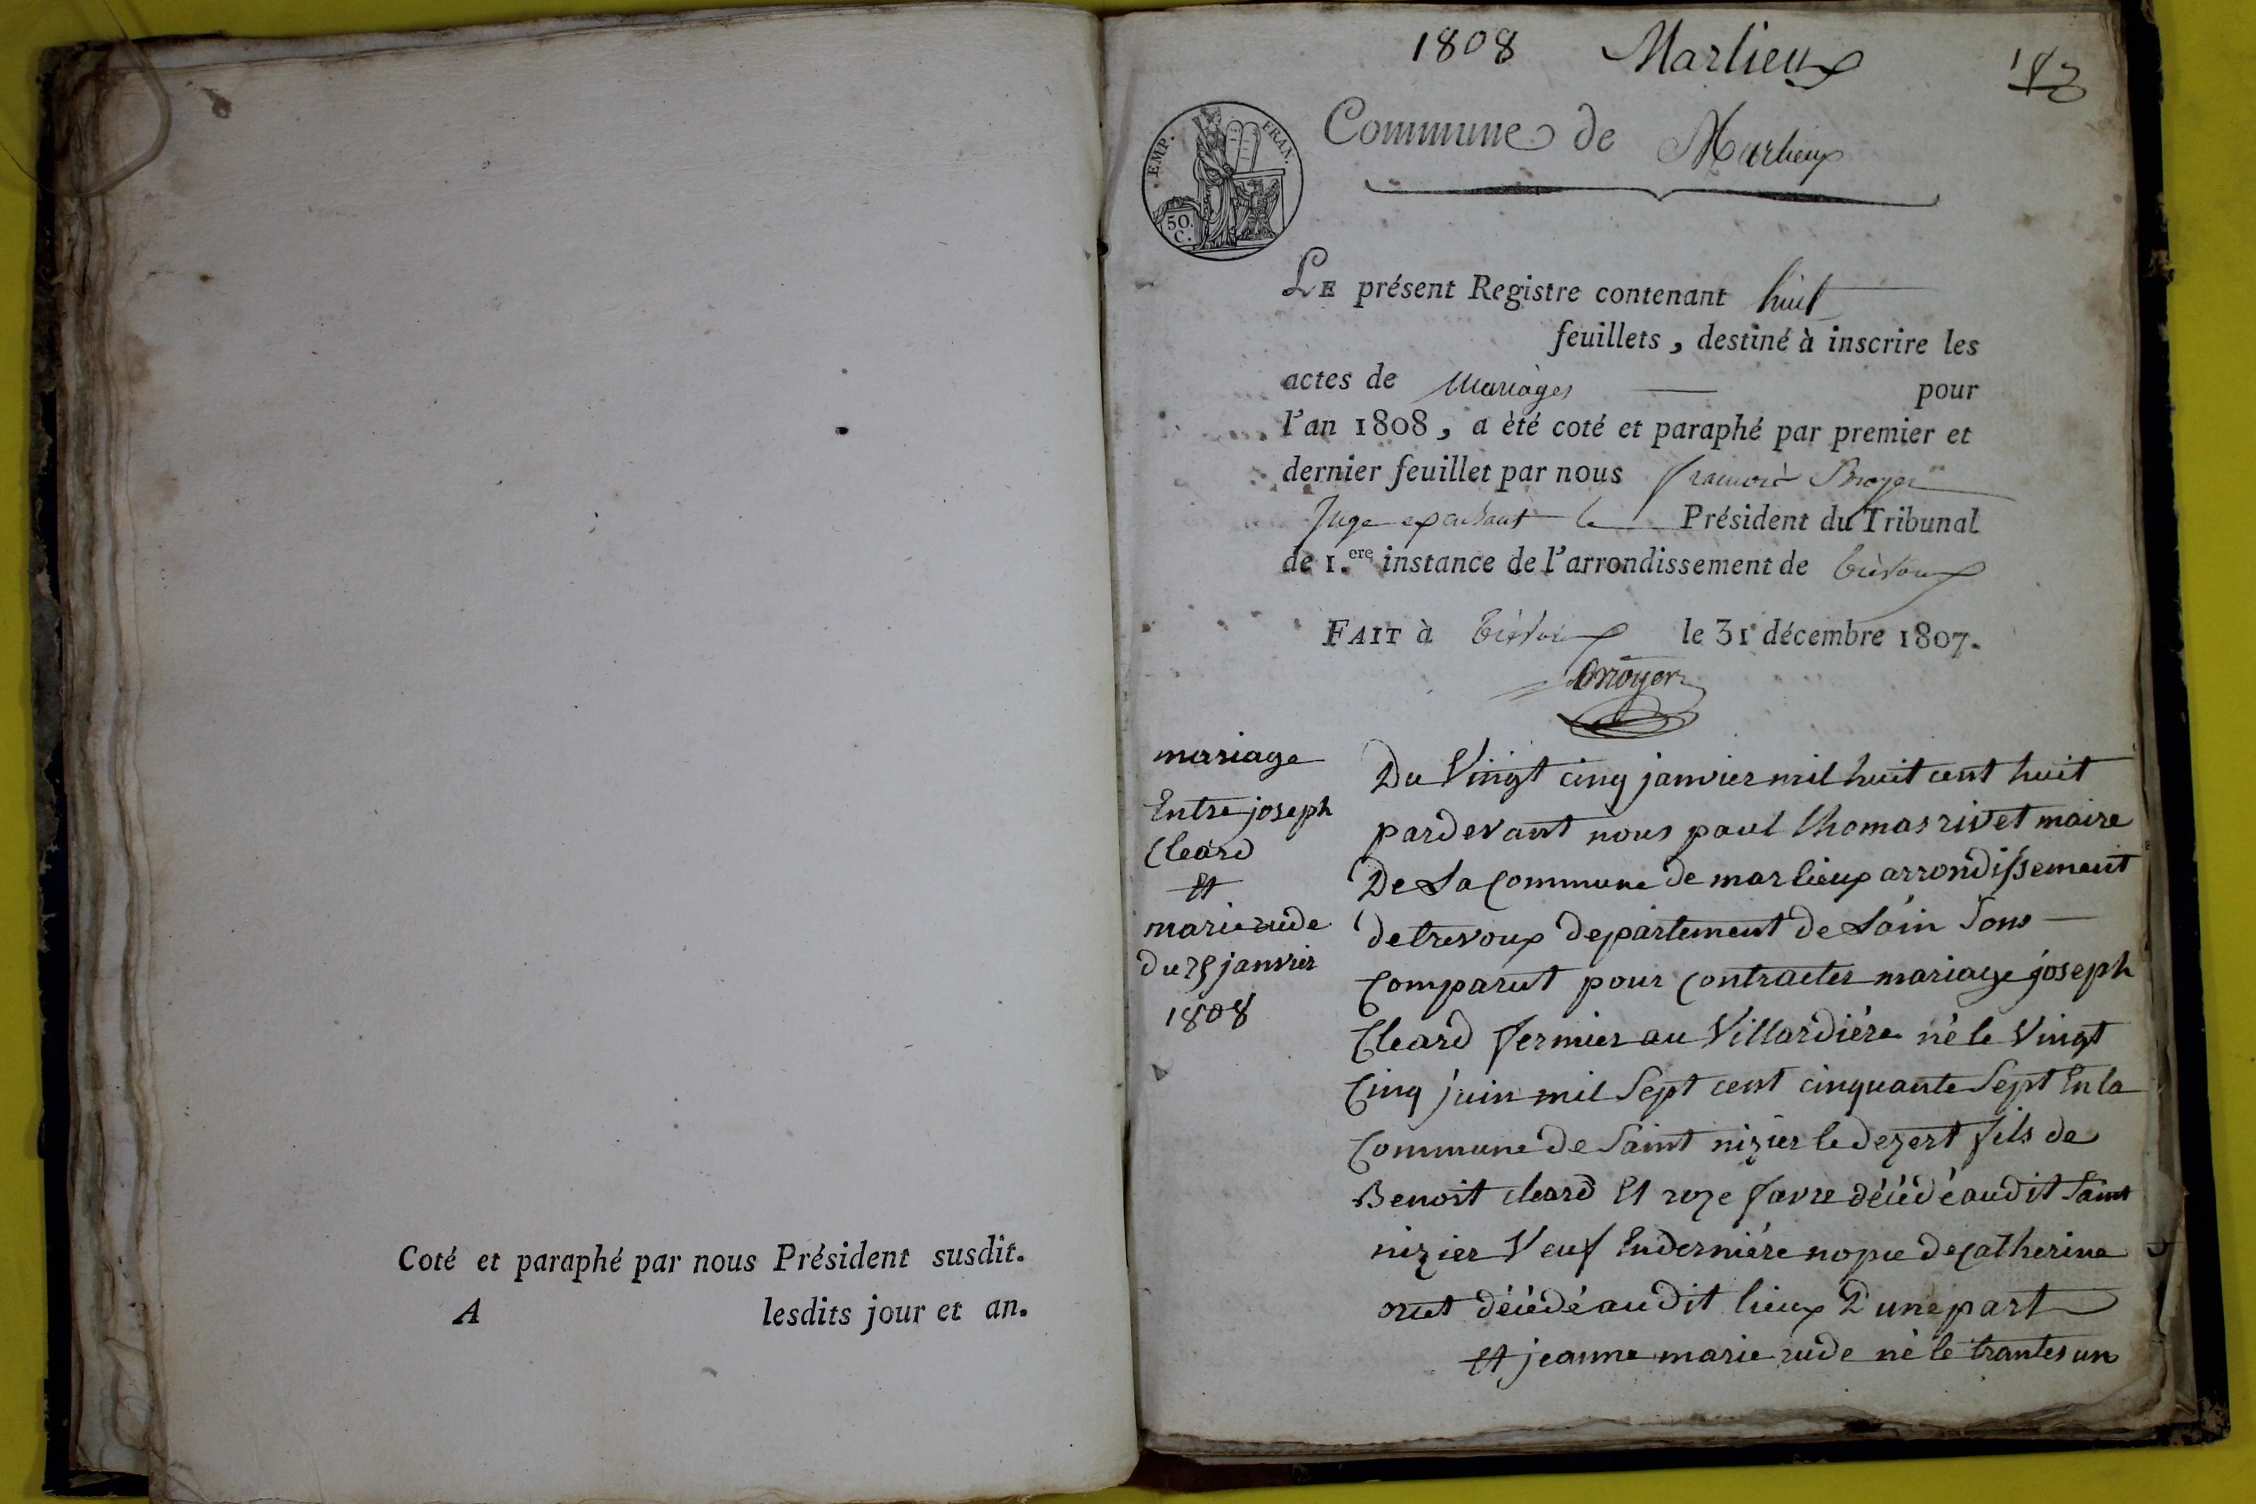 Coté et paraphé par nous Président susdit.
A lesdits jour et an.
1808 Marlieux
Commune de Marlieux
EMP. FRAN.
50.
C.
LE présent Registre contenant huit
feuillets, destiné à inscrire les
actes de Mariages pour
l'an 1808, a èté coté et paraphé par premier et
dernier feuillet par nous françois Broyer
Juge Président du Tribunal
de 1.ere instance de l'arrondissement de trévoux
FAIT à trévoux le 31 décembre 1807.
Broyer
mariage
Entre joseph
Cleard
Et
marie rude
du 25 janvier
1808
Du Vingt cinq janvier mil huit cent huit
pardevant nous paul thomas rivet maire
De La Commune de marlieux arrondissement
de trevoux departement de Láin Sont
Comparut pour Contracter mariage joseph
Cleard fermier au Villardiére né le Vingt
Cinq juin mil Sept cent cinquante Sept En la
Commune de Saint nizier le dezert fils de
Benoit cleard Et roze favre décédé audit Saint
nizier Veuf En derniére nopce de Catherine
décédé audit lieux D'une part
Et jeanne marie rude né le trantes un